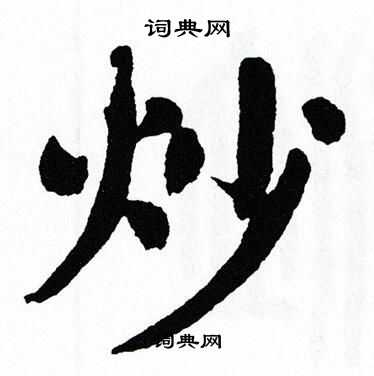 词典网
炒
词典网